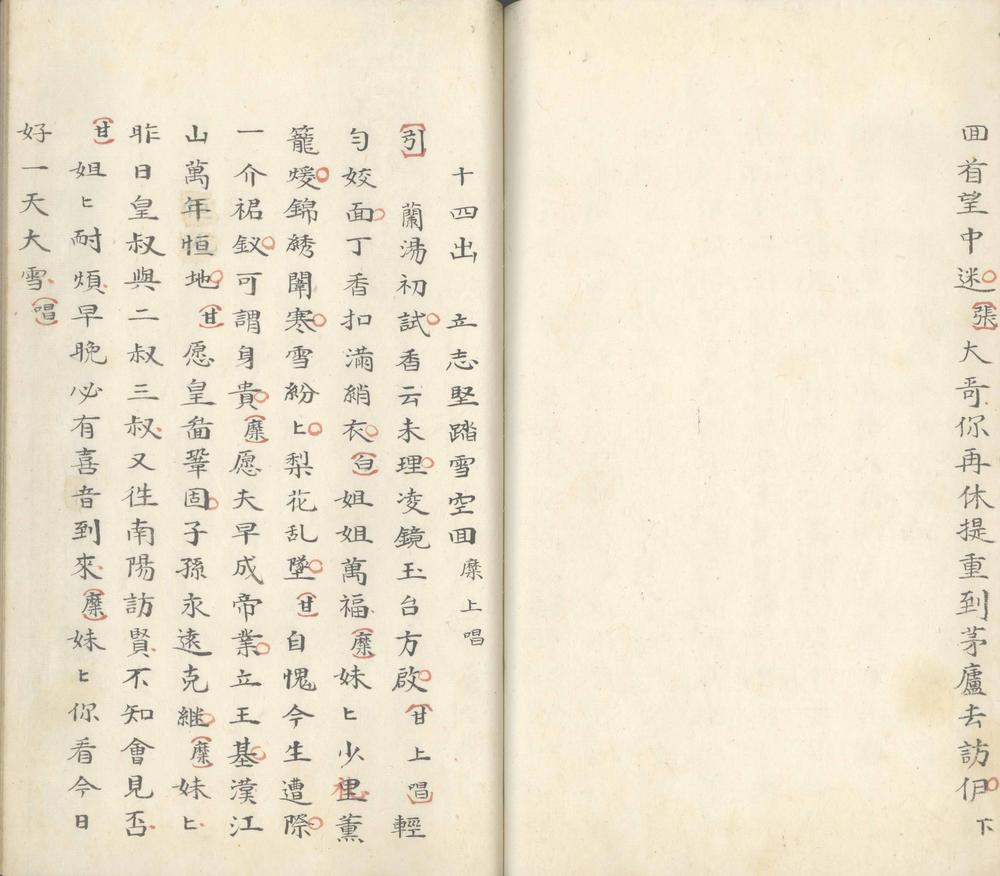 回首望中迷張大哥你再休提重到茅廬去訪伊下
十四出 立志堅踏雪空回 糜上唱
引 蘭湯初試香云未理凌鏡玉台方啟甘上唱輕
勻姣面丁香扣滿綃衣白姐姐萬福糜妹匕少里薰
籠煖錦綉闈寒雪紛匕梨花乱墜甘自愧今生遭際
一介裙釵可謂身貴糜愿夫早成帝業立王基漢江
山萬年恒地甘愿皇畨鞏固子孫永遠克繼糜妹匕
昨日皇叔與二叔三叔又徃南陽訪賢不知會見否
甘姐匕耐煩早晚必有喜音到來糜妹匕你看今日
好一天大雪唱